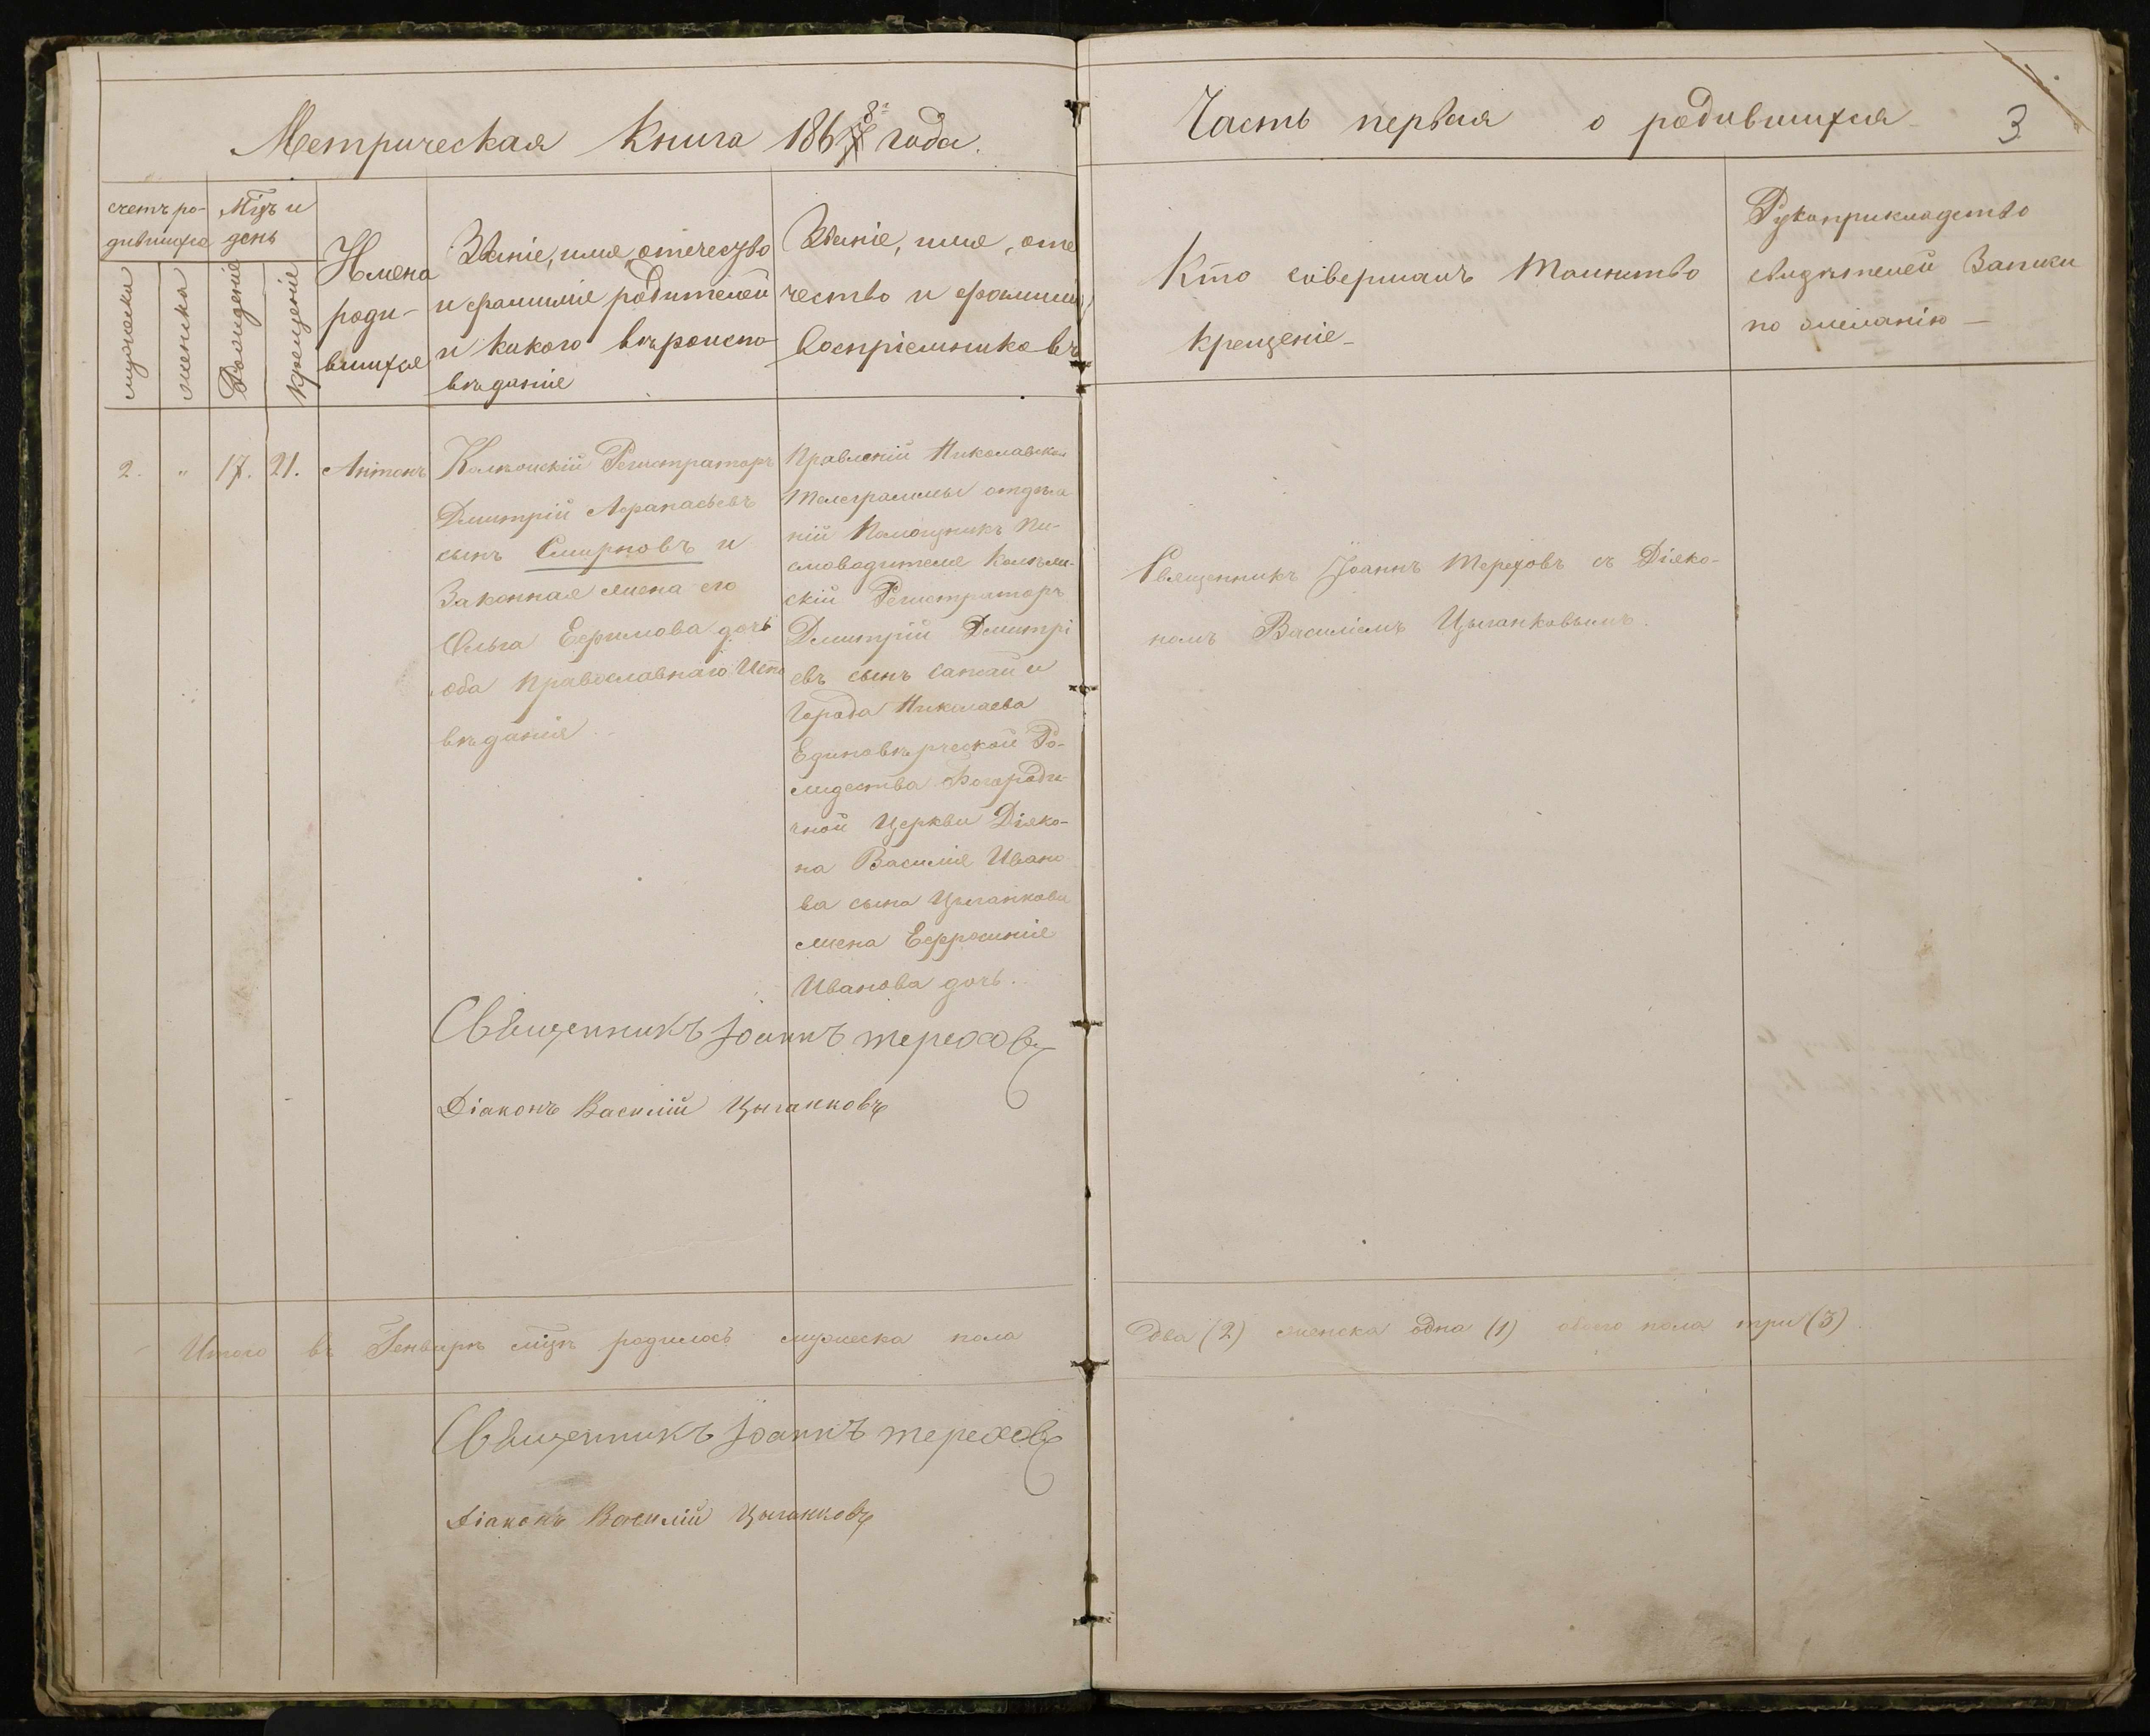 Метрическая Книга 1868 года.
Часть первая о родившихся
3
счетъ ро-
дившихся
мужеска
женска
Мц҃ъ и
день
Рожденіе
Крещеніе
Имена
роди-
вшихся
Званіе, имя, отечество
и фамилія родителей
и какого вѣроиспо-
вѣданія
Званіе, имя, оте
чество и фамилия
Воспріемниковъ
Кто совершалъ Таинство
Крещеніе
Рукоприкладство
свидѣтелей Записи
по желанію
2. " 17. 21. Антонъ
Регистраторъ
Дмитрій Афанасьевъ
сынъ Смирновъ и
Законная жена его
Ольга Ефимова дочь
оба Православнаго Испо
вѣданія
Правленій Николаевской
отдѣле
ній Помощникъ Пи-
смоводителя Колежи-
скій Регистраторъ
Дмитрій Дмитрі
евъ сынъ и
Города Николаева
Единовѣрческой Ро-
ждества Богороди-
чной Церкви Діяко-
на Василія Ивано
ва сына Цыганкова
жена Ефросинія
Иванова дочь.
Священникъ Іоаннъ Тереховъ съ Діяко-
номъ Василіемъ Цыганковымъ.
Священникъ Іоаннъ Тереховъ
Діаконъ Василій Цыганковъ
Итого въ Генварѣ мц҃ѣ родилось мужеска пола
два (2) женска одна (1) обоего пола три (3)
Священникъ Іоаннъ Тереховъ
Діаконъ Василій Цыганковъ